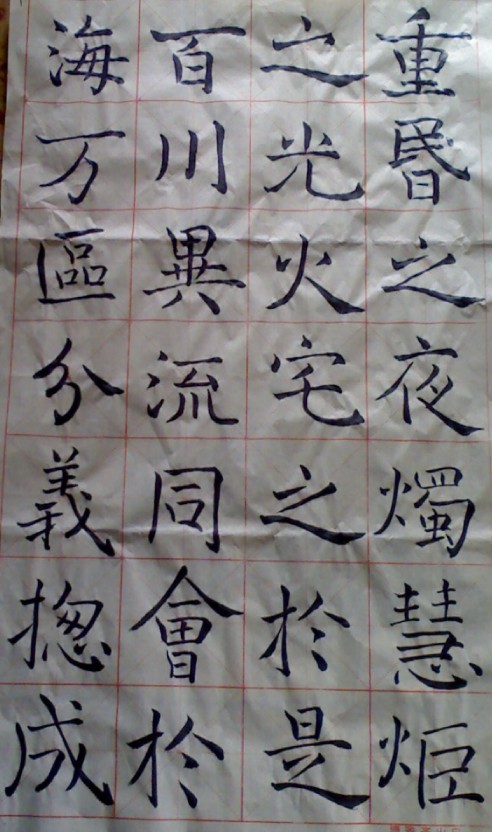 重昬之夜燭慧炬
之光火宅之扵是
百川異流同會扵
海万區分義揔成